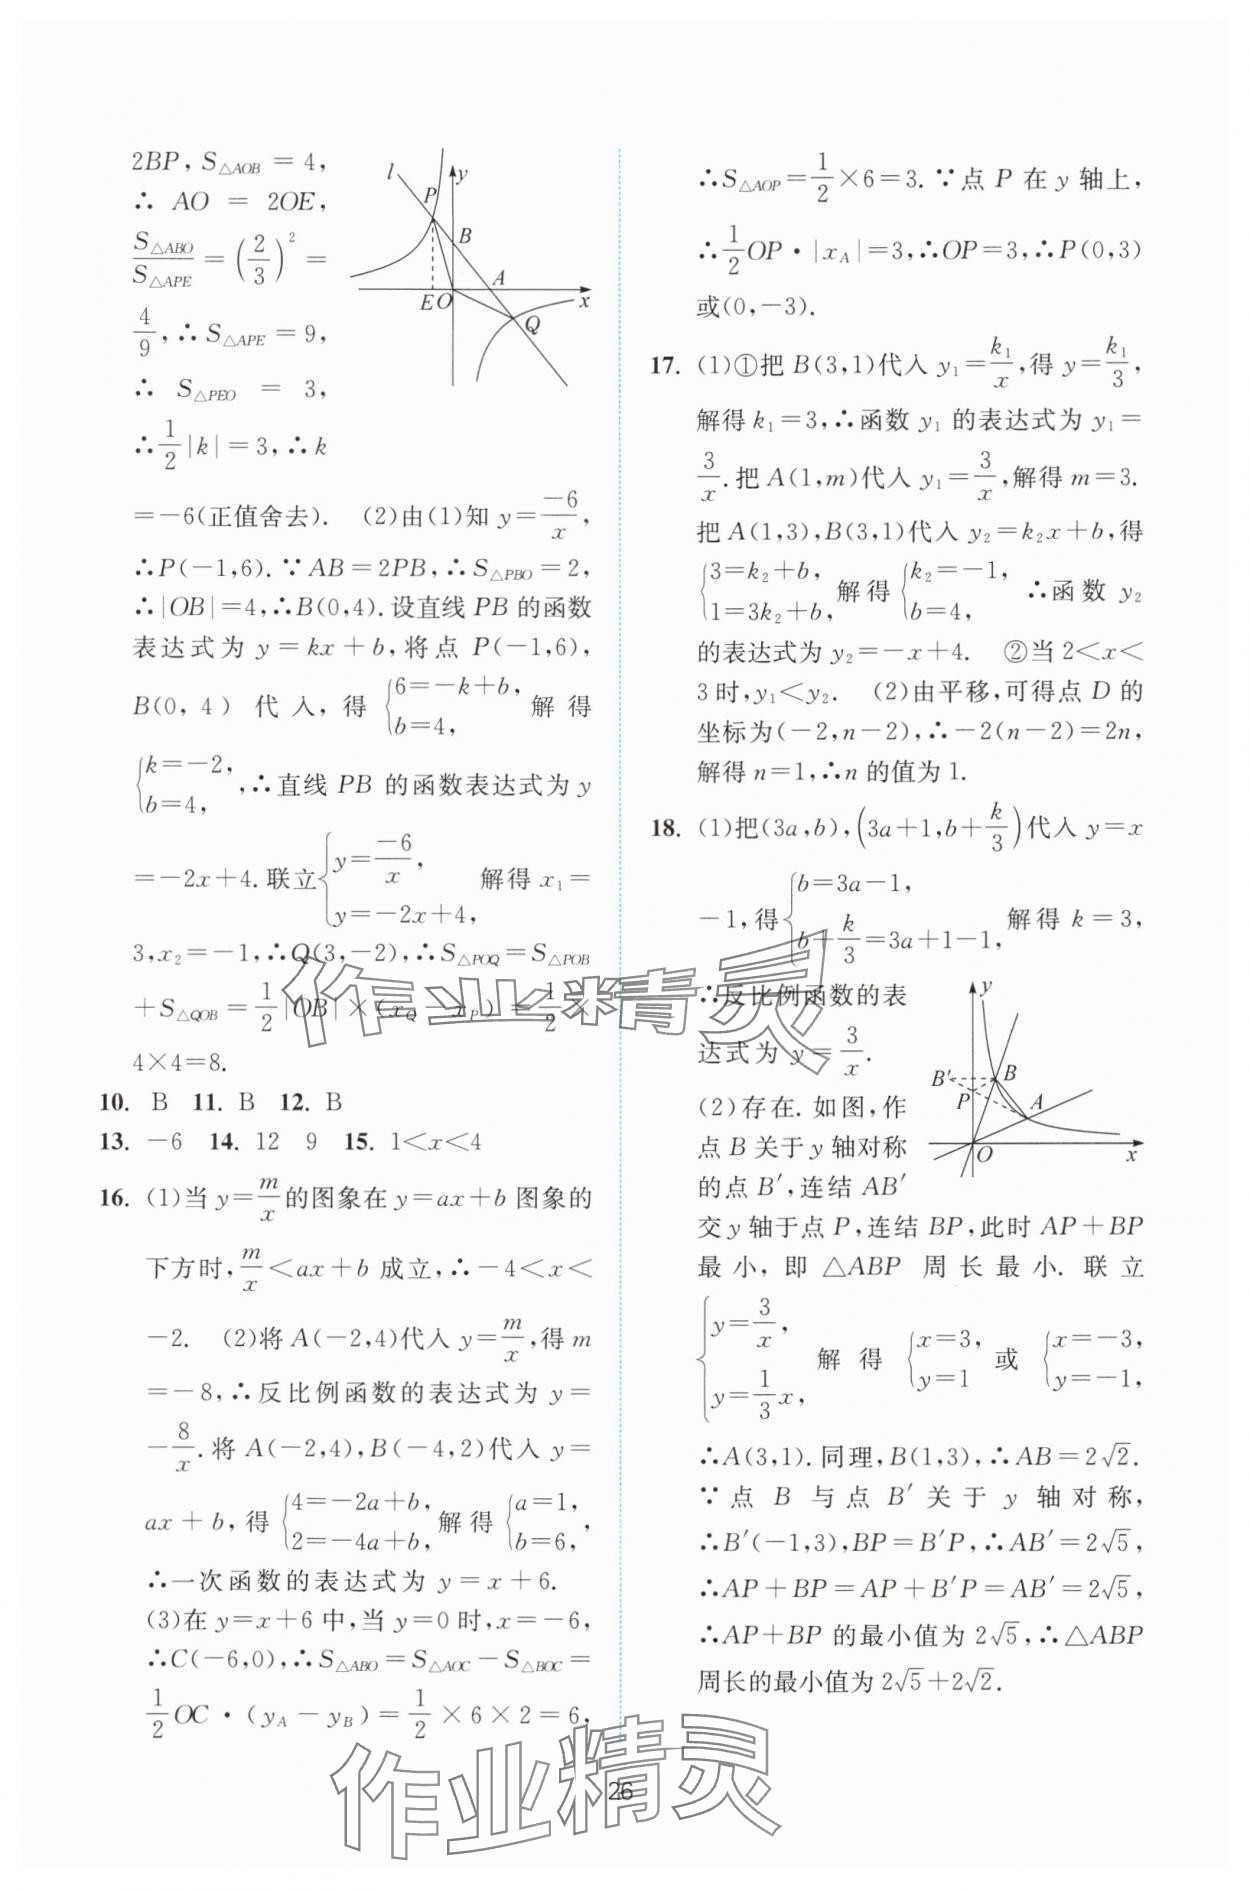 2BP, S△AOB = 4,
∴ AO = 2OE,
S△ABO/S△APE = (2/3)² =
4/9, ∴ S△APE = 9,
∴ S△PEO = 3,
∴ 1/2|k| = 3, ∴ k
l P y B A E O x Q
=-6(正值舍去). (2)由(1)知 y=-6/x,
∴P(-1,6). ∵AB=2PB,∴S△PBO=2,
∴|OB|=4,∴B(0,4).设直线 PB 的函数
表达式为 y=kx+b,将点 P(-1,6),
B(0,4)代入,得{6=-k+b, b=4, 解得
{k=-2, b=4, ∴直线 PB 的函数表达式为 y
=-2x+4.联立{y=-6/x, y=-2x+4, 解得 x₁=
3,x₂=-1,∴Q(3,-2),∴S△POQ=S△POB
+S△QOB=1/2|OB|×(xQ-xP)=1/2×
4×4=8.
10. B 11. B 12. B
13. -6 14. 12 9 15. 1<x<4
16. (1)当 y=m/x的图象在 y=ax+b 图象的
下方时,m/x<ax+b 成立,∴-4<x<
-2. (2)将 A(-2,4)代入 y=m/x,得 m
=-8,∴反比例函数的表达式为 y=
-8/x.将 A(-2,4),B(-4,2)代入 y=
ax+b,得{4=-2a+b, 2=-4a+b, 解得{a=1, b=6,
∴一次函数的表达式为 y=x+6.
(3)在 y=x+6 中,当 y=0 时,x=-6,
∴C(-6,0),∴S△ABO=S△AOC-S△BOC=
1/2OC·(yA-yB)=1/2×6×2=6,
∴S△AOP=1/2×6=3. ∵点 P 在 y 轴上,
∴1/2OP·|xA|=3,∴OP=3,∴P(0,3)
或(0,-3).
17. (1)①把 B(3,1)代入 y₁=k₁/x,得 y=k₁/3,
解得 k₁=3,∴函数 y₁ 的表达式为 y₁=
3/x.把 A(1,m)代入 y₁=3/x,解得 m=3.
把 A(1,3),B(3,1)代入 y₂=k₂x+b,得
{3=k₂+b, 1=3k₂+b, 解得{k₂=-1, b=4, ∴函数 y₂
的表达式为 y₂=-x+4. ②当 2<x<
3 时,y₁<y₂. (2)由平移,可得点 D 的
坐标为(-2,n-2),∴-2(n-2)=2n,
解得 n=1,∴n 的值为 1.
18. (1)把(3a,b),(3a+1,b+k/3)代入 y=x
-1,得{b=3a-1, b+k/3=3a+1-1, 解得 k=3,
∴反比例函数的表
达式为 y=3/x.
(2)存在. 如图,作
点 B 关于 y 轴对称
的点 B′,连结 AB′
y B′ B P A O x
交 y 轴于点 P,连结 BP,此时 AP+BP
最小, 即 △ABP 周长最小. 联立
{y=3/x, y=1/3x, 解得{x=3, y=1 或{x=-3, y=-1,
∴A(3,1).同理,B(1,3),∴AB=2√2.
∵点 B 与点 B′关于 y 轴对称,
∴B′(-1,3),BP=B′P,∴AB′=2√5,
∴AP+BP=AP+B′P=AB′=2√5,
∴AP+BP 的最小值为 2√5,∴△ABP
周长的最小值为 2√5+2√2.
作业精灵
作业精灵
26